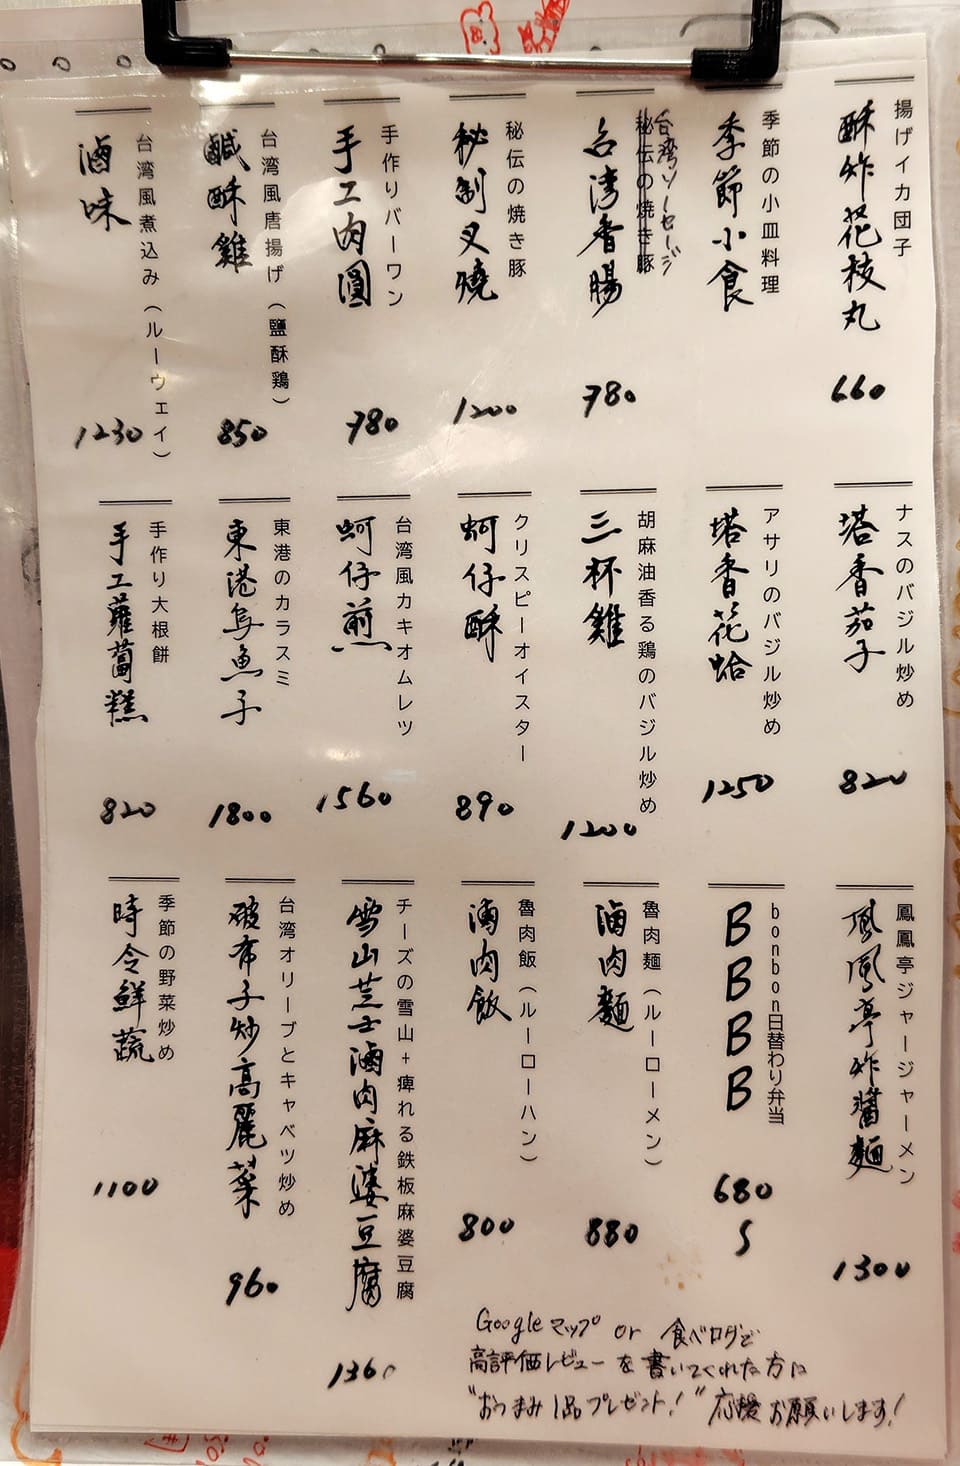 揚げイカ団子
酥炸花枝丸
660
季節の小皿料理
季節小食
台湾ソーセージ
秘伝の焼き豚
台湾香腸
780
秘伝の焼き豚
秘制叉燒
1200
手作りバーワン
手工肉圓
780
台湾風唐揚げ(鹽酥鶏)
鹹酥雞
850
台湾風煮込み(ルーウェイ)
滷味
1230
ナスのバジル炒め
塔香茄子
820
アサリのバジル炒め
塔香花蛤
1250
胡麻油香る鶏のバジル炒め
三杯雞
1200
クリスピーオイスター
蚵仔酥
890
台湾風カキオムレツ
蚵仔煎
1560
東港のカラスミ
東港烏魚子
1800
手作り大根餅
手工蘿蔔糕
820
鳳鳳亭ジャージャーメン
鳳凰亭炸醬麵
1300
bonbon日替わり弁当
BBBB
680
S
魯肉麺(ルーローメン)
滷肉麵
880
魯肉飯(ルーローハン)
滷肉飯
800
チーズの雪山+痺れる鉄板麻婆豆腐
雪山芝士滷肉麻婆豆腐
1360
台湾オリーブとキャベツ炒め
破布子炒高麗菜
960
季節の野菜炒め
時令鮮蔬
1100
Googleマップ or 食べログで
高評価レビューを書いてくれた方に
"おつまみ1品プレゼント!" 応援お願いします!